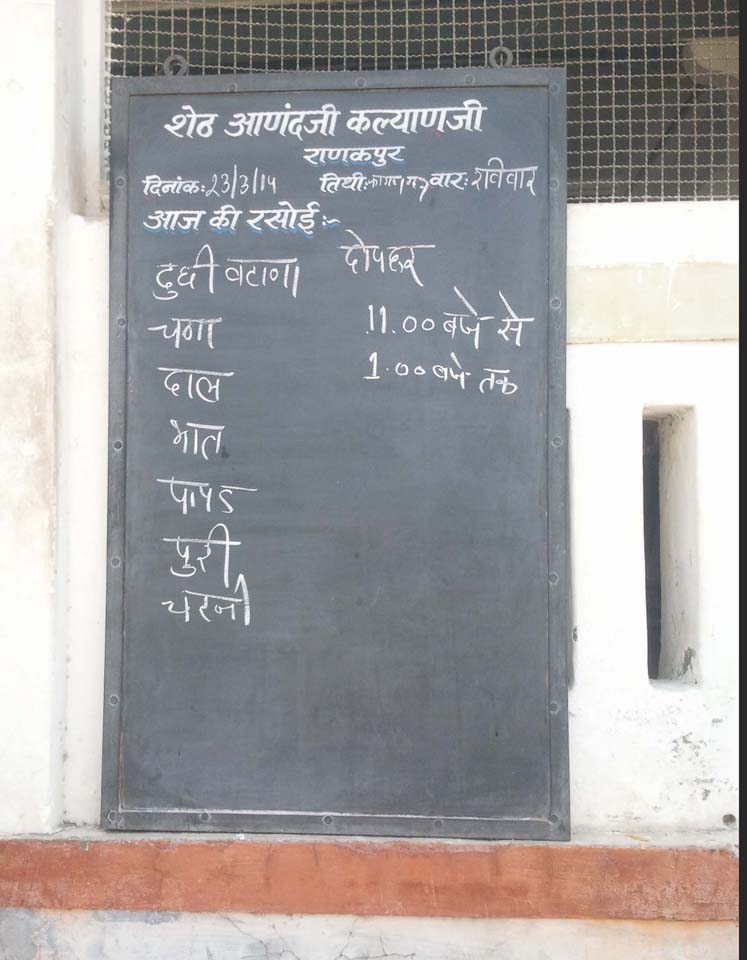 शेठ आणंदजी कल्याणजी
राणकपुर
दिनांक: 23/3/14 तिथी: वार: रविवार
आज की रसोई :-
दुधी वटाणा दोपहर
चणा 11.00 बजे से
दाल 1.00 बजे तक
भात
पापड
पुरी
चटनी